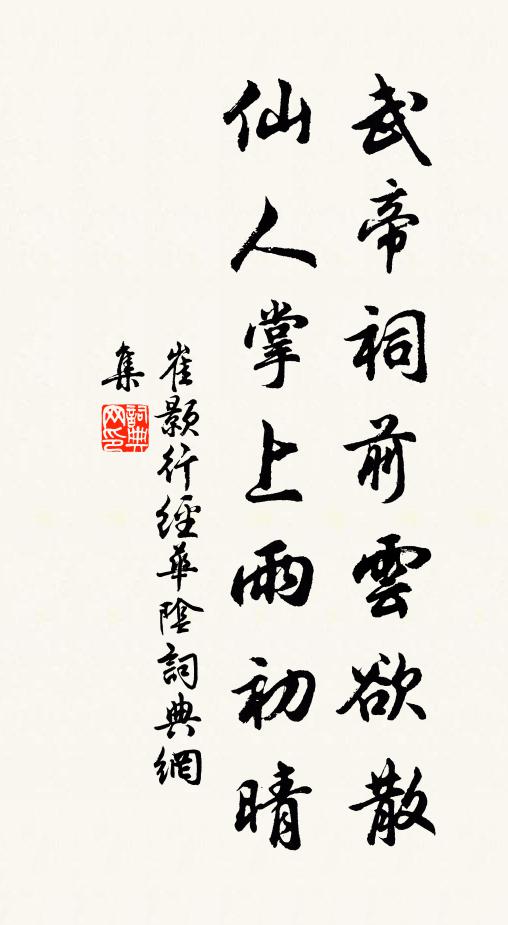 武帝祠前雲欲散
仙人掌上雨初晴
崔顥行經華陰詞典網
集
詞典
网印